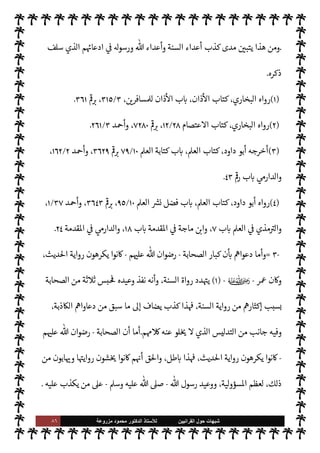 .ومن هذا يتبين مدى كذب أعداء السنة وأعداء الله ورسوله في ادعائهم الذي سلف
ذكره.
(١)رواه البخاري، كتاب الأذان، باب الأذان للمسافرين، ٣١٥/٣، برقم ٣٦١.
(٢)رواه البخاري، كتاب الاعتصام ١٢/٢٨، برقم ٧٢٨٠، وأحمد ٢٦١/٣.
(٣)أخرجه أبو داود، كتاب العلم، باب كتابة العلم ٧٩/١٠ برقم ٣٦٢٩، وأحمد ١٦٢/٢،
والدارمي باب رقم ٤٣.
(٤)رواه أبو داود، كتاب العلم، باب فضل نشر العلم ٩٥/١٠، برقم ٣٦٤٣، وأحمد ١/٣٧،
والترمذي في العلم باب ٧، وابن ماجة في المقدمة باب ١٨، والدارمي في المقدمة ٢٤.
٣٠ =وأما دعواهم بأن كبار الصحابة - رضوان الله عليهم - كانوا يكرهون رواية الحديث،
وكان عمر - ﷺ - (١) يتهدد رواة السنة، وأنه نفذ وعيده فحبس ثلاثة من الصحابة
بسبب إكثارهم من رواية السنة، فهذا كذب يضاف إلى ما سبق من دعاواهم الكاذبة،
وفيه جانب من التدليس الذي لا يخلو عنه كلامهم.أما أن الصحابة - رضوان الله عليهم
- كانوا يكرهون رواية الحديث، فهذا باطل، والحق أنهم كانوا يخشون روايتها ويهابون من
ذلك، لعظم المسؤولية، ووعيد رسول الله - صلى الله عليه وسلم - على من يكذب عليه .
شبهات حول القرآنيين للأستاذ الدكتور محمود مزروعة ٨٦